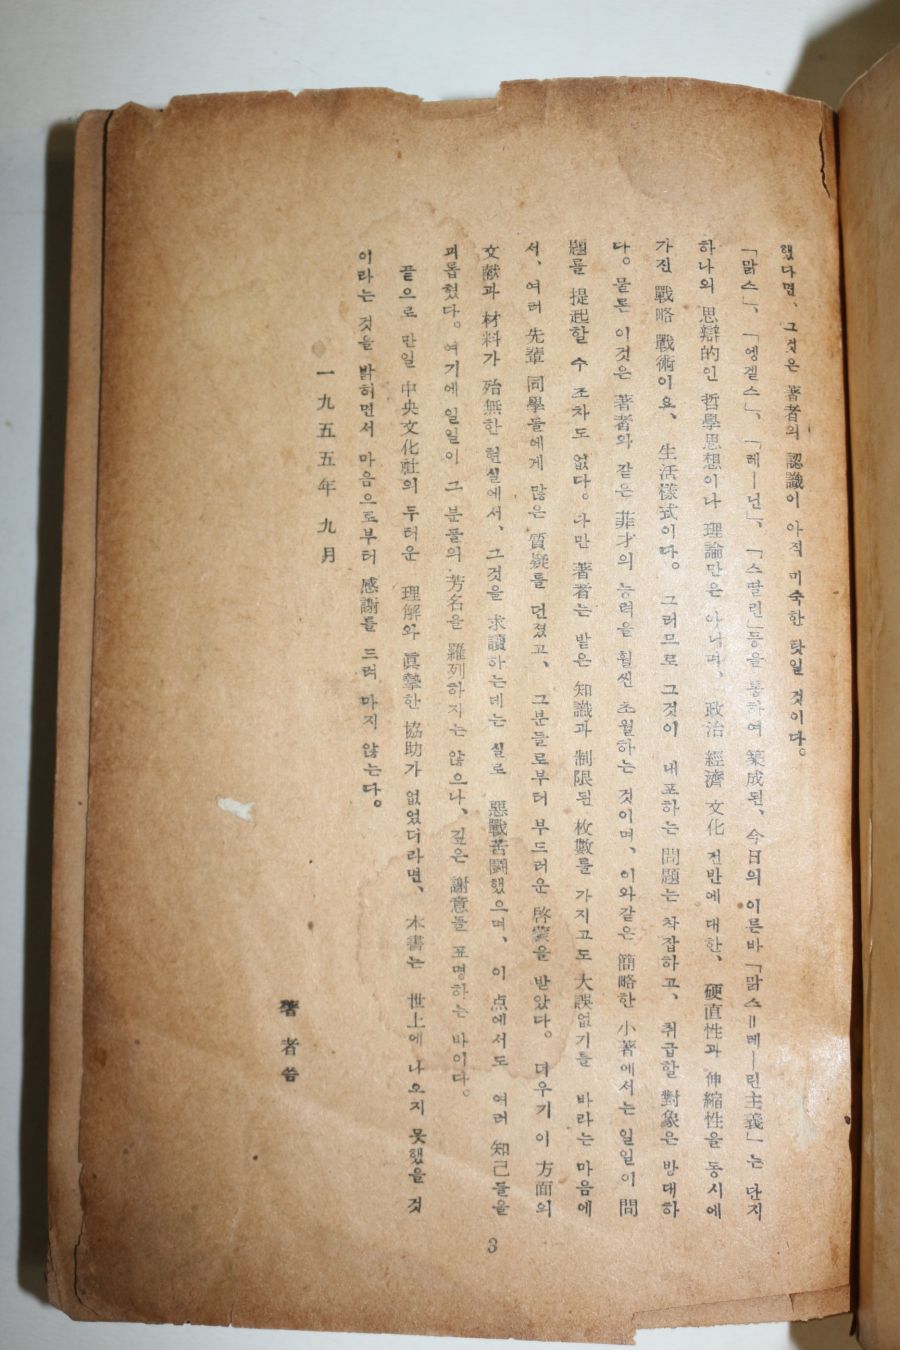 했다면、그것은 著者의 認識이 아직 미숙한 탓일 것이다。
「맑스」、「엥겔스」、「레ー닌」、「스딸린」등을 통하여 築成된、今日의 이른바「맑스=레ー린主義」는 단지
하나의 思辯的인 哲學思想이나 理論만은 아니며、政治 經濟 文化 전반에 대한、硬直性과 伸縮性을 동시에
가진 戰略 戰術이요、生活樣式이다。그러므로 그것이 내포하는 問題는 착잡하고、취급할 對象은 방대하
다。물론 이것은 著者와 같은 菲才의 능력을 훨씬 초월하는 것이며、이와같은 簡略한 小著에서는 일일이 問
題를 提起할 수 조차도 없다。다만 著者는 밭은 知識과 制限된 枚數를 가지고도 大誤없기를 바라는 마음에
서、여러 先輩 同學들에게 많은 質疑를 던졌고、그분들로부터 부드러운 啓蒙을 받았다。더우기 이 方面의
文献과 材料가 殆無한 현실에서、그것을 求讀하는데는 실로 惡戰苦鬪했으며、이 点에서도 여러 知己들을
괴롭혔다。여기에 일일이 그 분들의 芳名을 羅列하지는 않으나、깊은 謝意를 표명하는 바이다。
끝으로 만일 中央文化社의 두터운 理解와 眞摯한 協助가 없었더라면、本書는 世上에 나오지 못했을 것
이라는 것을 밝히면서 마음으로부터 感謝를 드려 마지 않는다。
一九五五年 九月
著者씀
3